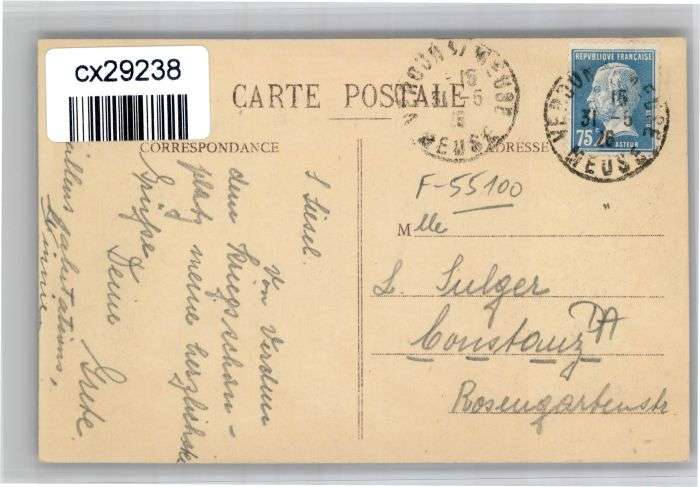 cx29238
CARTE POSTALE
CORRESPONDANCE
ADRESSE
VERDUN S/ MEUSE
15
31 -5
MEUSE
REPUBLIQUE FRANÇAISE
75
PASTEUR
15
31 -5
26
MEUSE
F-55100
Mlle
L. Sulger
Constanz
Rosengartenstr
L Liesel.
Von Verdun
dem Kriegsschau-
platz meine herzlichste
Grüße
Deine Grete.
salutations,